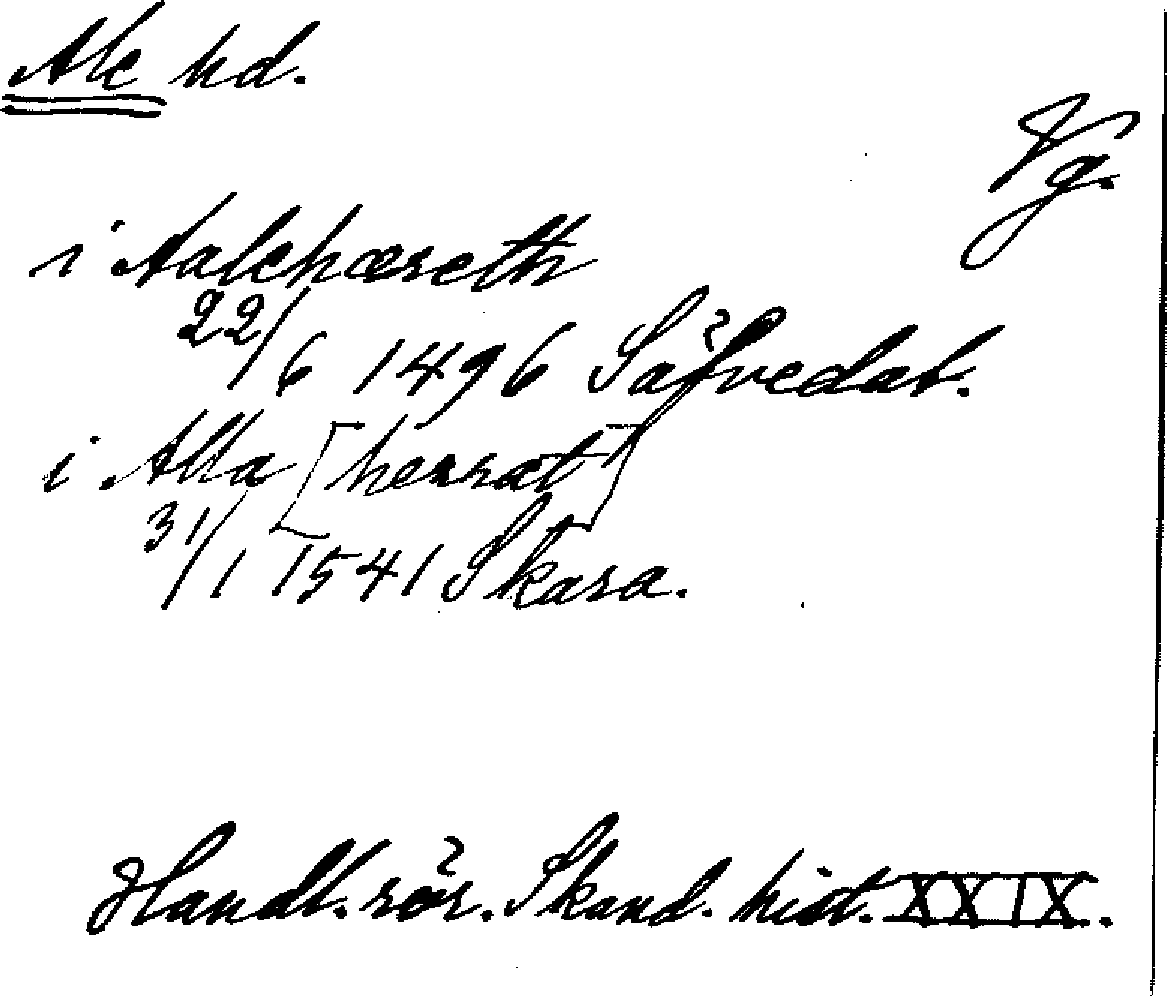 Ale hd.
Vg.
i Aalehæreth
22/6 1496 Säfvedat.
i Alla [herrat]
31/1 1541 Skara.
Handl. rör. Skand. hist. XXIX.